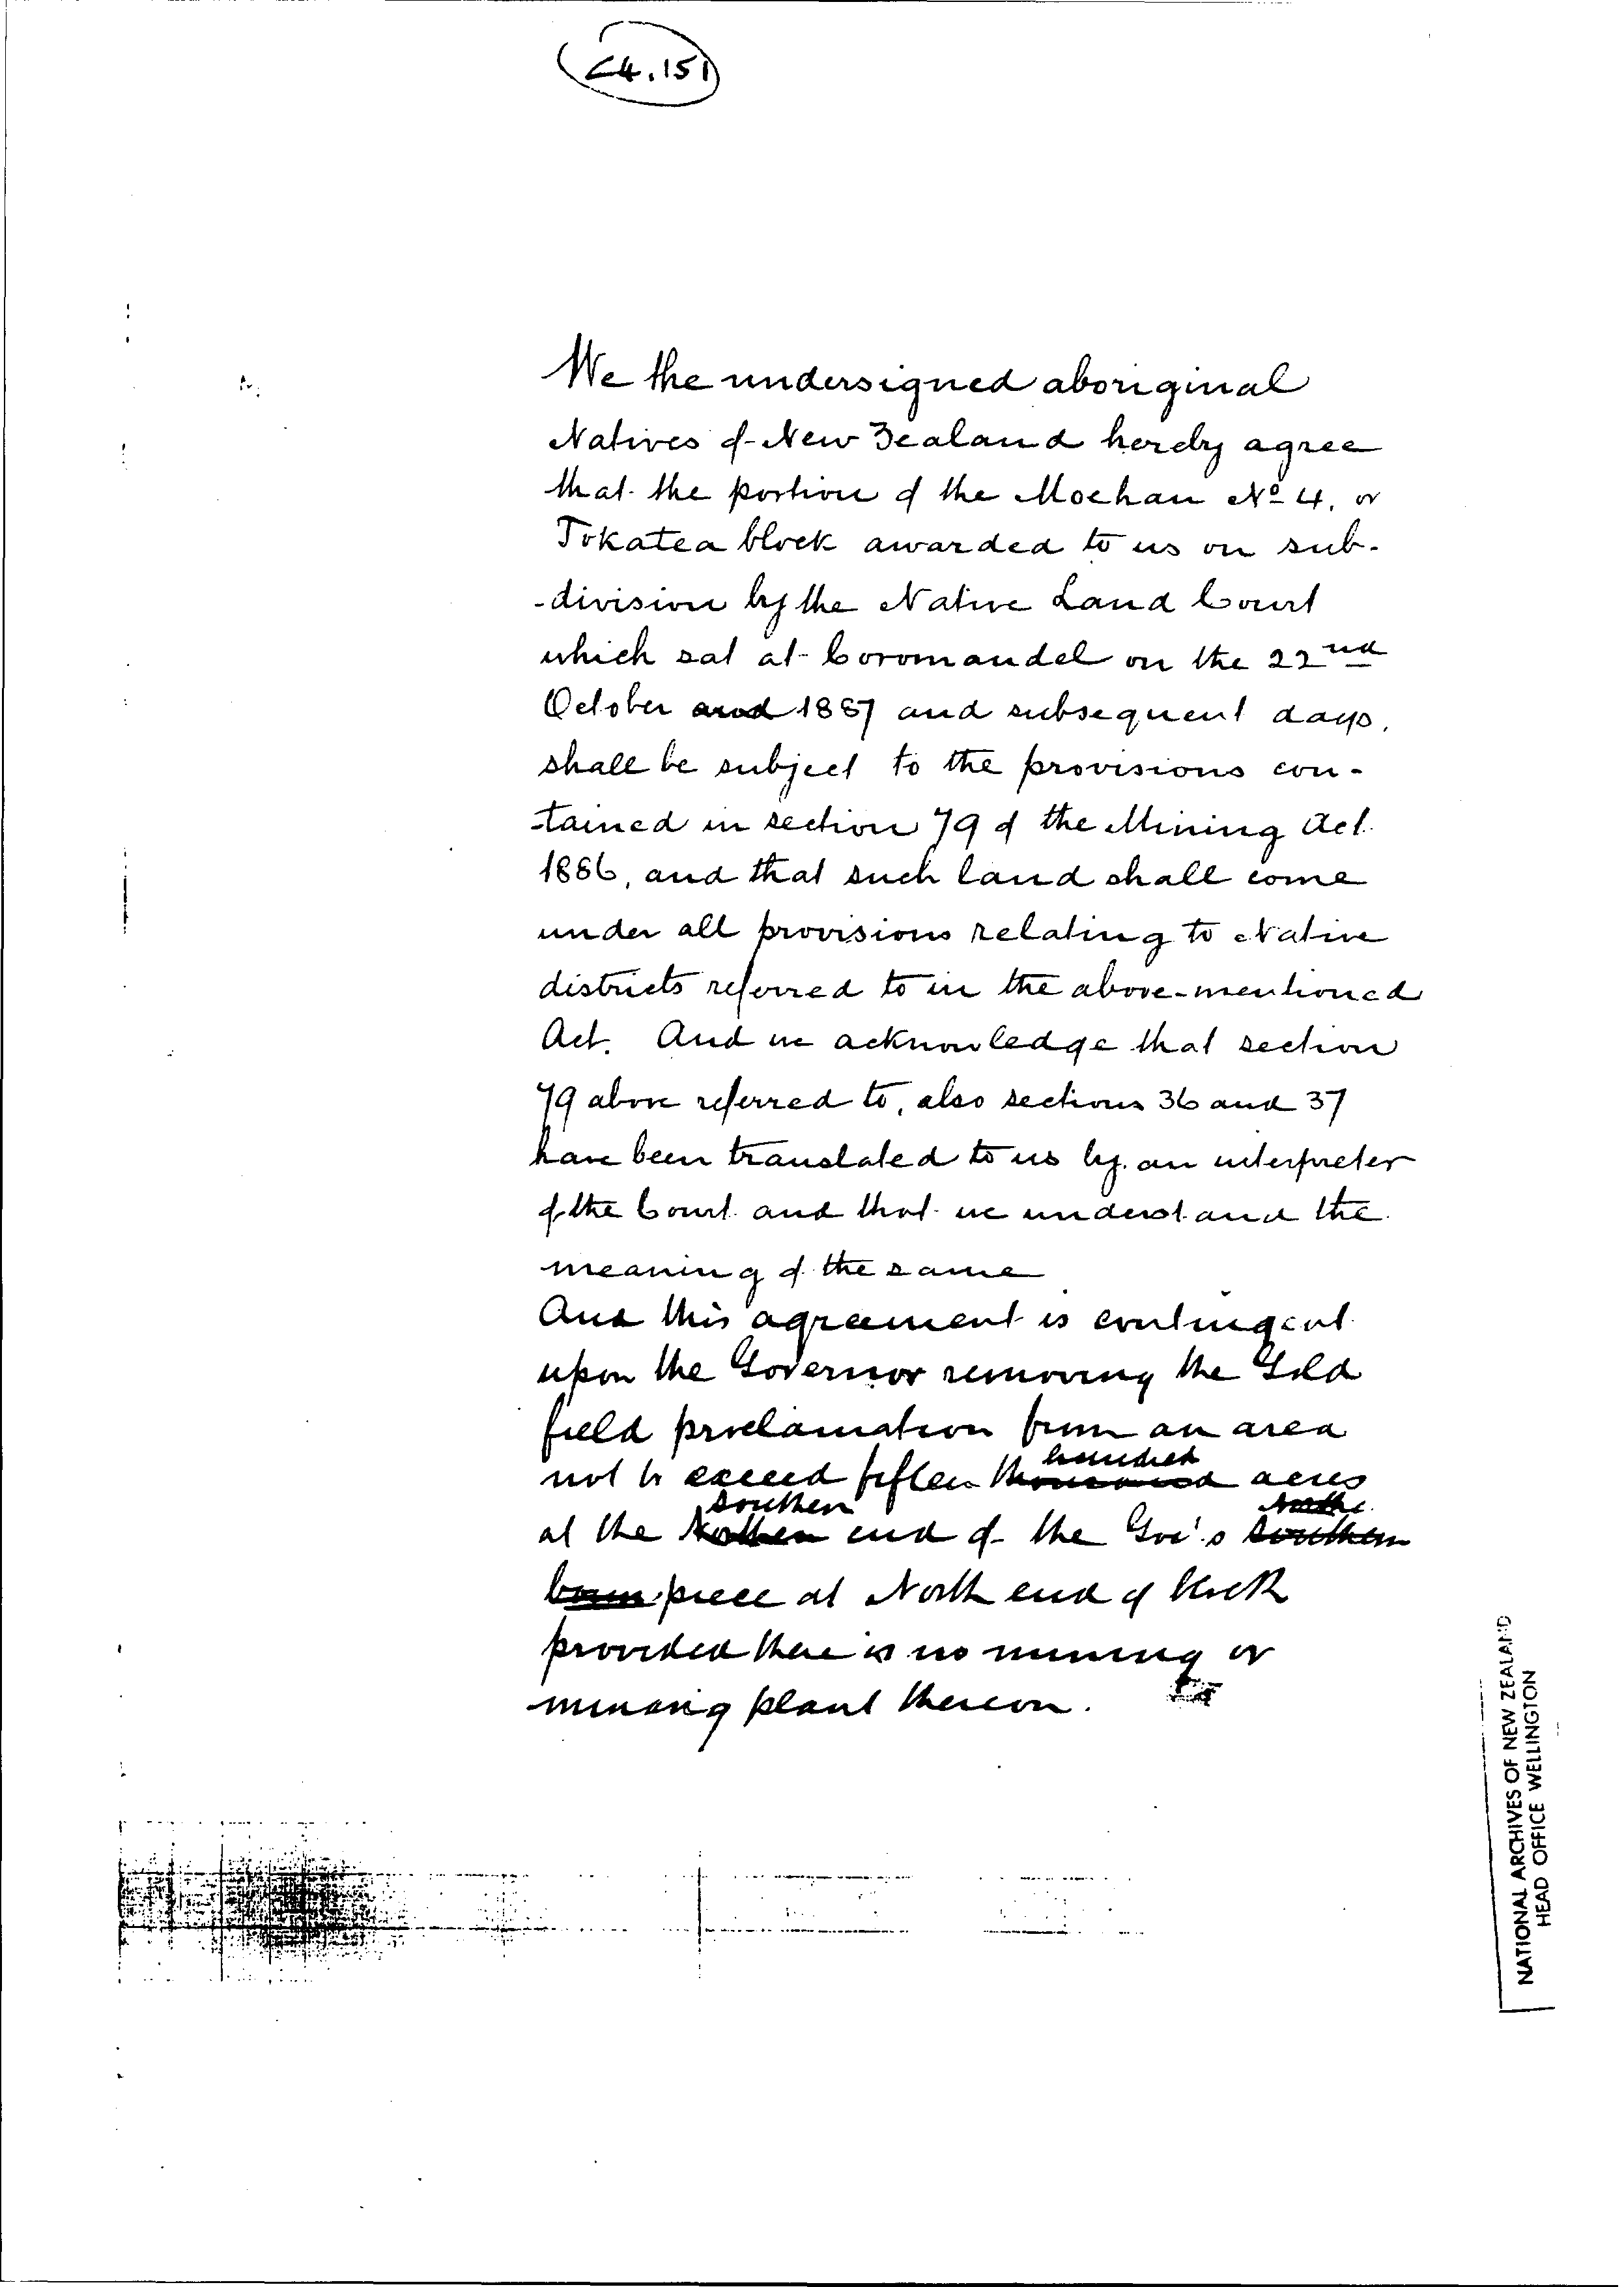 C4.151
We the undersigned aboriginal
Natives of New Zealand hereby agree
that the portion of the Moehau No 4, or
Tokatea block awarded to us on sub-
-division by the Native Land Court
which sat at Coromandel on the 22nd
October and 1887 and subsequent days,
shall be subject to the provisions con-
-tained in section 79 of the Mining Act
1886, and that such land shall come
under all provisions relating to Native
districts referred to in the above-mentioned
Act. And we acknowledge that section
79 above referred to, also sections 36 and 37
have been translated to us by an interpreter
of the Court and that we understand the
meaning of the same
And this agreement is contingent
upon the Governor removing the Gold
field proclamation from an area
hundred
not to exceed fifteen thousand acres
southern
at the Northern end of the Gov's southern
piece at North end of block
provided there is no mining or
mining plant thereon.
NATIONAL ARCHIVES OF NEW ZEALAND
HEAD OFFICE WELLINGTON